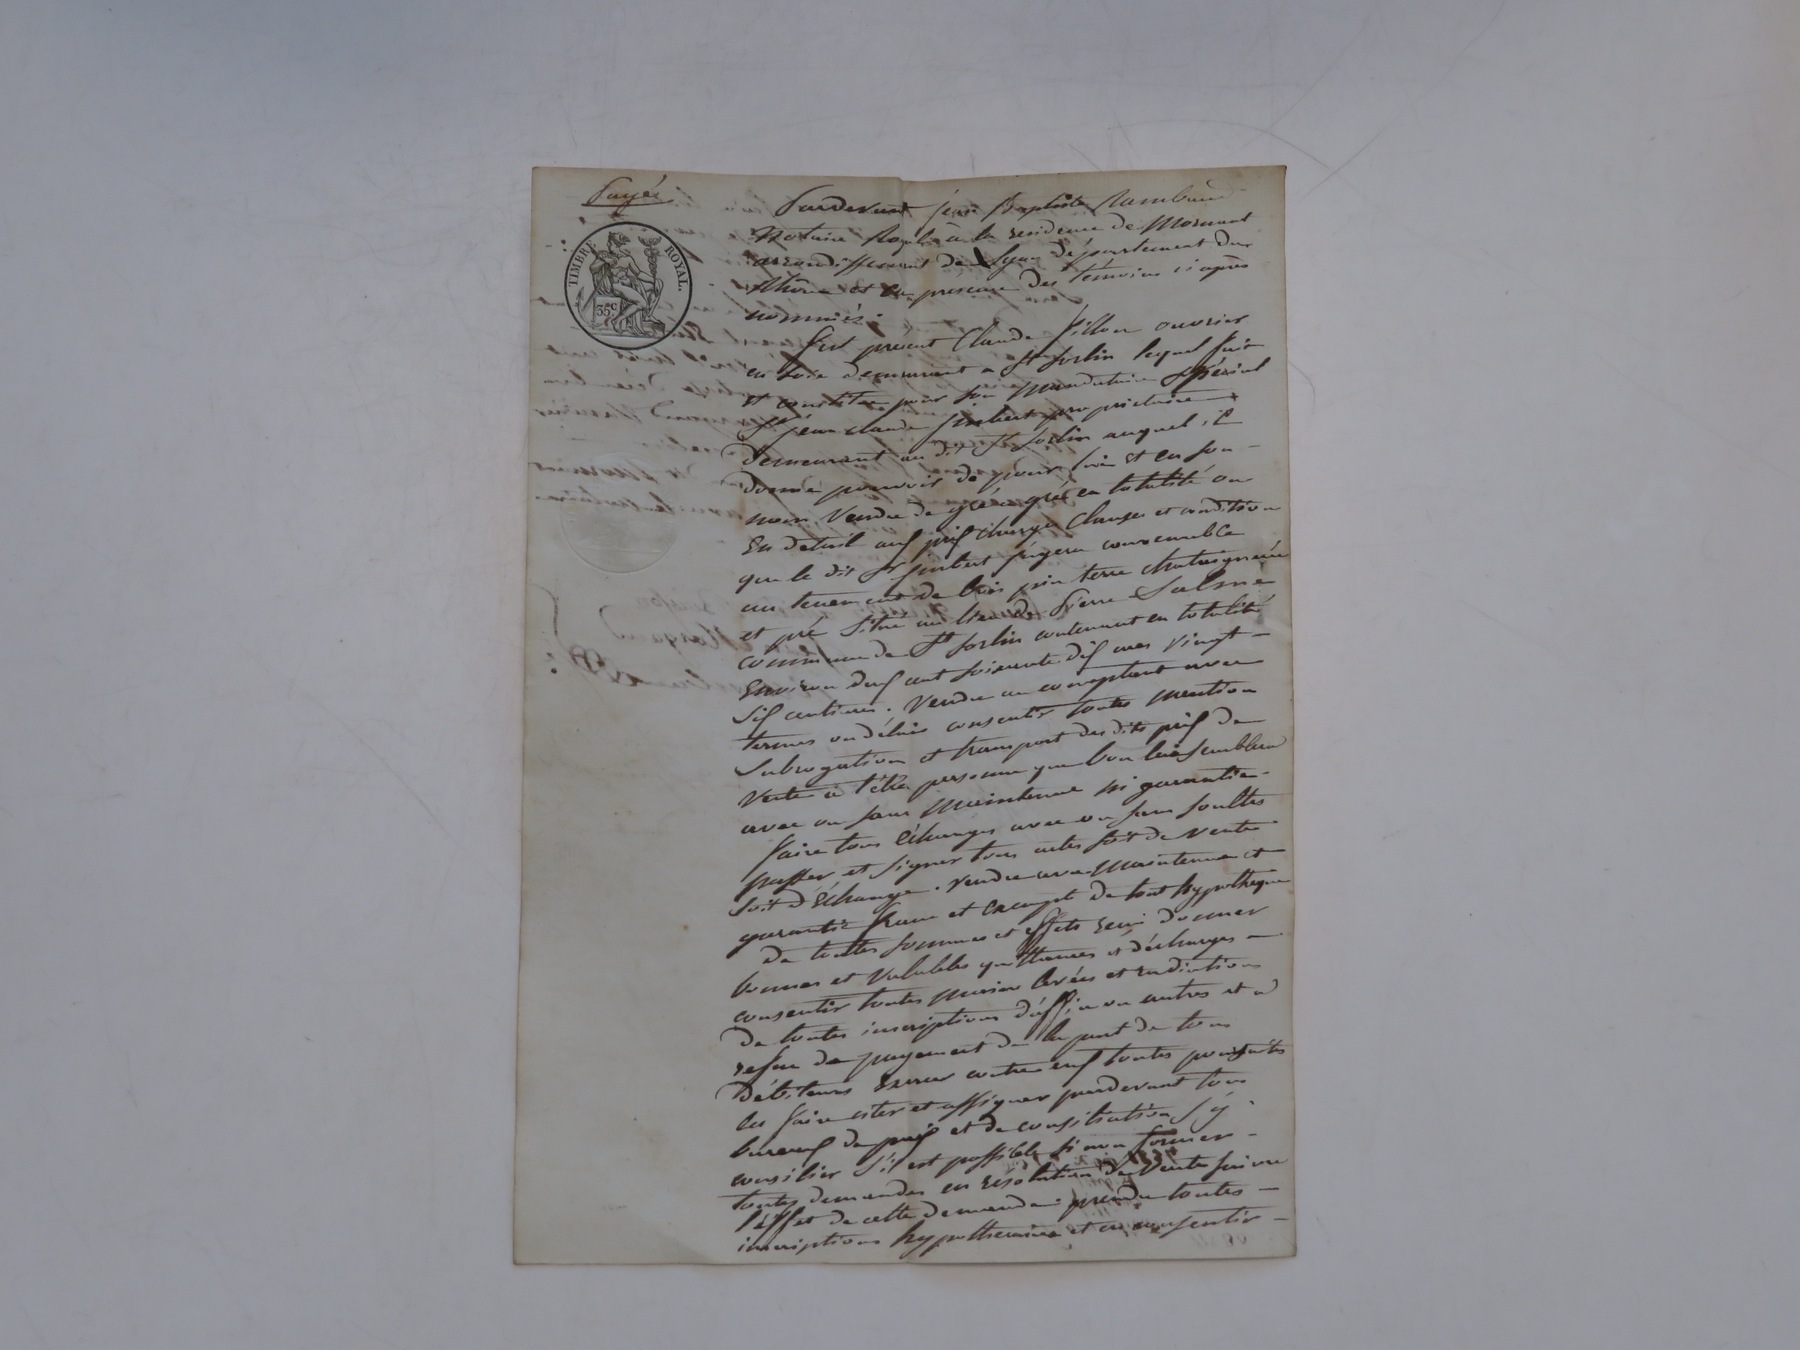 Payé
TIMBRE ROYAL.
35c
Pardevant jean Baptiste Rambaud
Notaire Royal à la residence de Mornant
arrondissement de Lyon département du
Rhône et en présence des témoins ci après
nommés.
fut présent Claude Pillon ouvrier
en soie demeurant a St Sorlin lequel fait
et constitue pour son mandataire spécial
Sr jean claude jimbert proprietaire
demeurant au dit St Sorlin auquel il
donne pouvoir de pour lui et en son
nom, Vendre de gré a gré en totalité ou
en detail aux prix charges clauses et condition
que le dit Sr jimbert jugera convenable
un tenement de bois pin terre chataigneraie
et pré situé au lieu de Pierre
commune de St Sorlin contenant en totalité
environ deux cent soixante dix ares vingt
six centiares. Vendre au comptant avec
termes ou délais consentir toutes mention
subrogation et transport des dits prix de
vente a telle personne que bon lui semblera
avec ou sans maintenue ni garantie
faire tous échanges avec ou sans soultes
passer et signer tous actes soit de vente
soit d'échange. vendre avec maintenue et
garantie franc et exempt de tout hypothèque
de toutes sommes et effets reçus donner
bonnes et valables quittances et décharges
consentir toutes main levées et radiations
de toutes inscriptions d'office ou autres et a
refus de payement de la part de tous
débiteurs exercer contre eux toutes poursuites
les faire citer et assigner pardevant tous
bureaux de paix et de consiliation s'y
consilier s'il est possible si non former
toutes demandes en résolution de vente suivre
l'effet de cette demande prendre toutes
inscriptions hypothécaires et en consentir